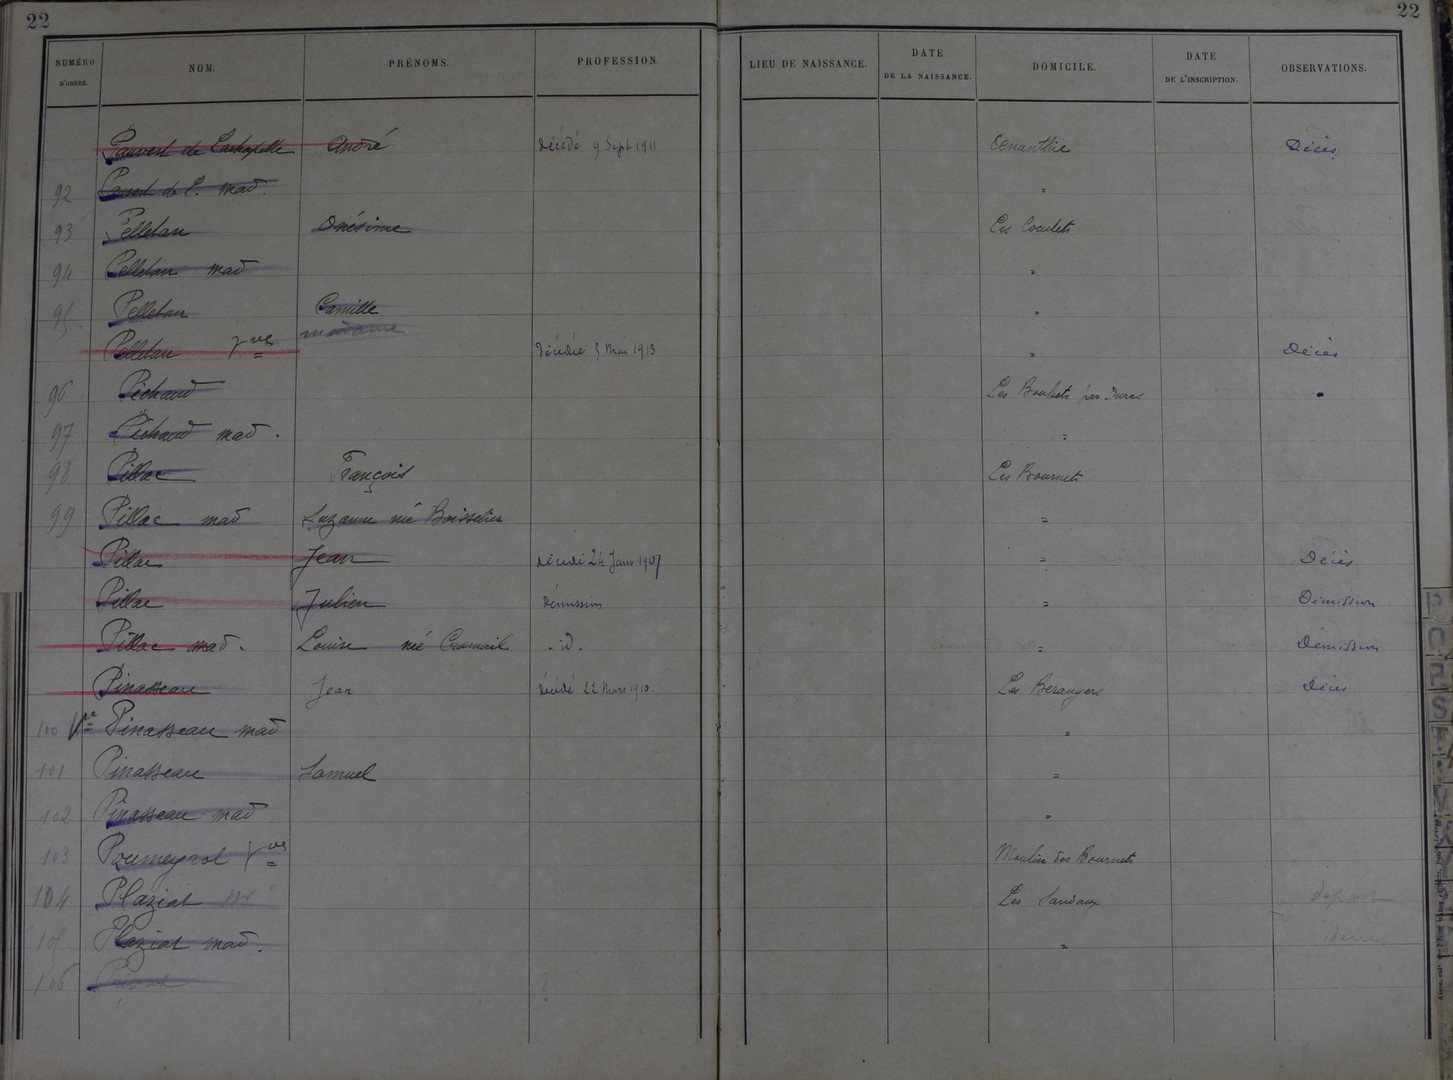 22
22
NUMÉRO D'ORDRE. NOM. PRÉNOMS. PROFESSION. LIEU DE NAISSANCE. DATE DE LA NAISSANCE. DOMICILE. DATE DE L'INSCRIPTION. OBSERVATIONS.
Pauvert de Lachapelle André Décédé 9 Sept 1911 Oenanthie Décès
92 Pauvert de L. mad. "
93 Pelletan Onésime Les Coculets
94 Pelletan mad "
95 Pelletan Camille "
madame
Pelletan Vve Décédée 5 Mai 1913 " Décès
96 Pichaud Les Bouhets par Duras "
97 Pichaud mad. "
98 Pillac François Les Bournets
99 Pillac mad Suzanne né Boisselier "
Pillac Jean Décédé 24 Janv 1907 " Décès
Pillac Julien Démission " Démission
Pillac mad. Louise né Cromail - id - " Démission
Pinasseau Jean Décédé 22 Mars 1910 Les Berangers Décès
100 Vve Pinasseau mad "
101 Pinasseau Samuel "
102 Pinasseau mad "
103 Poumeyrol Vve Moulin des Bournets
104 Plaziat Mr Les Landaux
105 Plaziat mad. "
106
P
Q
R
S
T
V